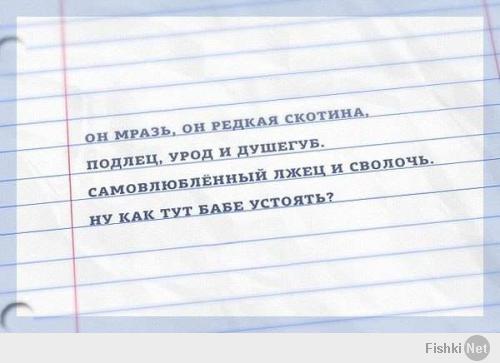 ОН МРАЗЬ, ОН РЕДКАЯ СКОТИНА,
ПОДЛЕЦ, УРОД И ДУШЕГУБ.
САМОВЛЮБЛЁННЫЙ ЛЖЕЦ И СВОЛОЧЬ.
НУ КАК ТУТ БАБЕ УСТОЯТЬ?
Fishki Net